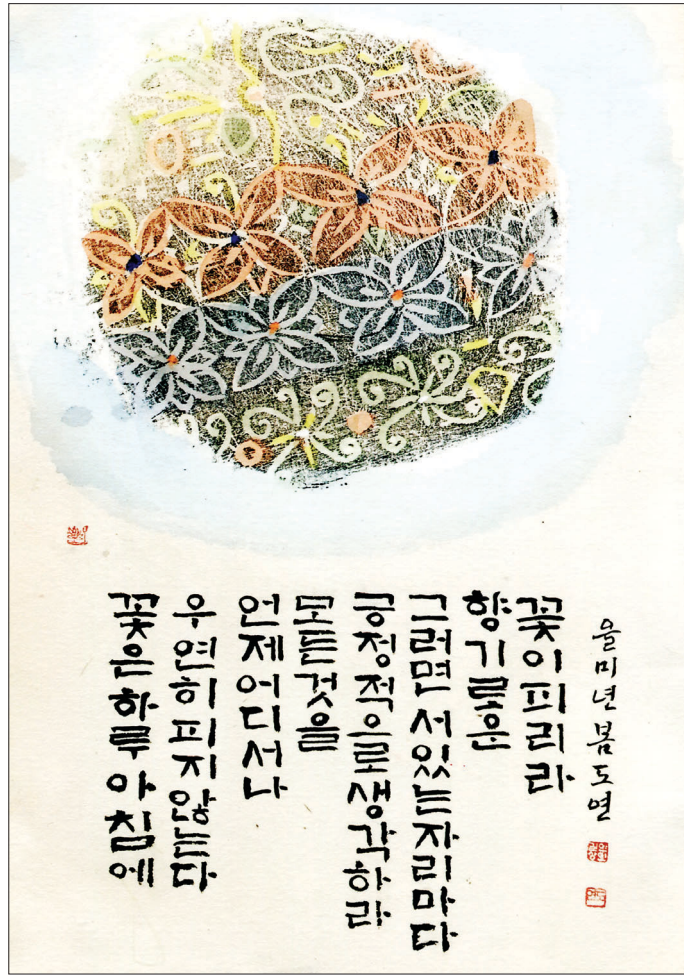 꽃은 하루 아침에
우연히 피지 않는다
언제 어디서나
모든것을
긍정적으로 생각하라
그러면 서있는 자리마다
향기로운
꽃이 피리라
을미년 봄 도연